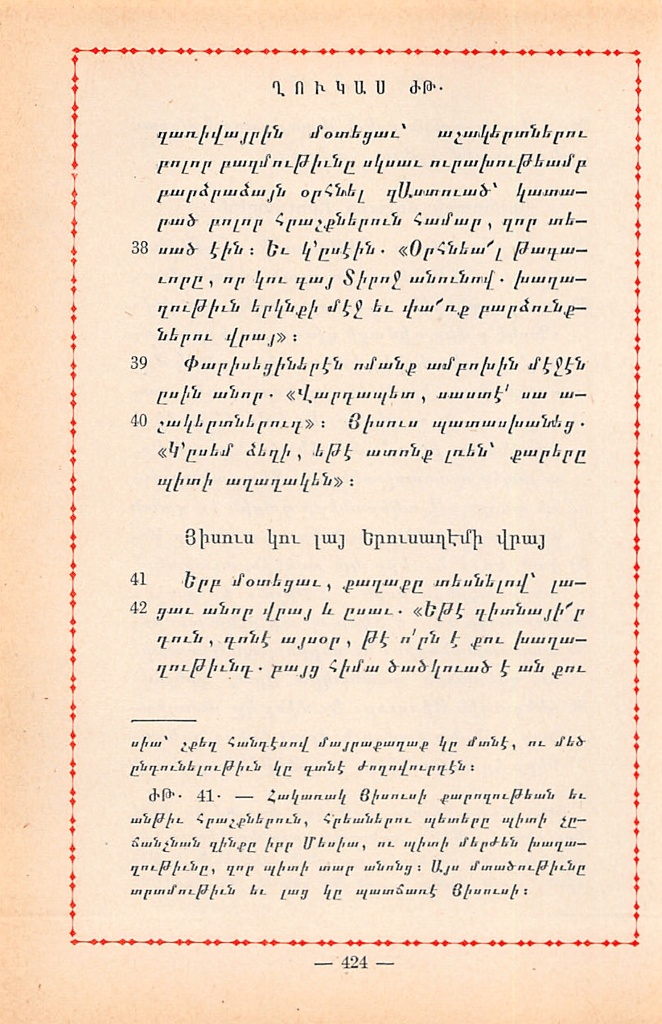 ՂՈՒԿԱՍ ԺԹ.
զառիվայրին մօտեցաւ՝ աշակերտներու
բոլոր բազմութիւնը սկսաւ ուրախութեամբ
բարձրաձայն օրհնել զԱստուած՝ կատա—
րած բոլոր հրաշքներուն համար, զոր տե—
38 սած էին: Եւ կ'ըսէին. «Օրհնեա՜լ թագա—
ւորը, որ կու գայ Տիրոջ անունով. խաղա—
ղութիւն երկնքի մէջ եւ փա՜ռք բարձունք—
ներու վրայ»:
39 Փարիսեցիներէն ոմանք ամբոխին մէջէն
ըսին անոր. «Վարդապետ, սաստէ՛ սա ա—
40 շակերտներուդ»: Յիսուս պատասխանեց.
«Կ'ըսեմ ձեզի, եթէ ատոնք լռեն՝ քարերը
պիտի աղաղակեն»:
Յիսուս կու լայ Երուսաղէմի վրայ
41 Երբ մօտեցաւ, քաղաքը տեսնելով՝ լա—
42 ցաւ անոր վրայ և ըսաւ. «Եթէ գիտնայի՜ր
դուն, գոնէ այսօր, թէ ո՛րն է քու խաղա—
ղութիւնդ. բայց հիմա ծածկուած է ան քու
սիա՝ շքեղ հանդէսով մայրաքաղաք կը մտնէ, ու մեծ
ընդունելութիւն կը գտնէ ժողովուրդէն:
ԺԹ. 41. — Հակառակ Յիսուսի քարոզութեան եւ
անթիւ հրաշքներուն, Հրեաներու պետերը պիտի չը—
ճանչնան զինքը իբր Մեսիա, ու պիտի մերժեն խաղա—
ղութիւնը, զոր պիտի տար անոնց: Այս մտածութիւնը
տրտմութիւն եւ լաց կը պատճառէ Յիսուսի:
— 424 —